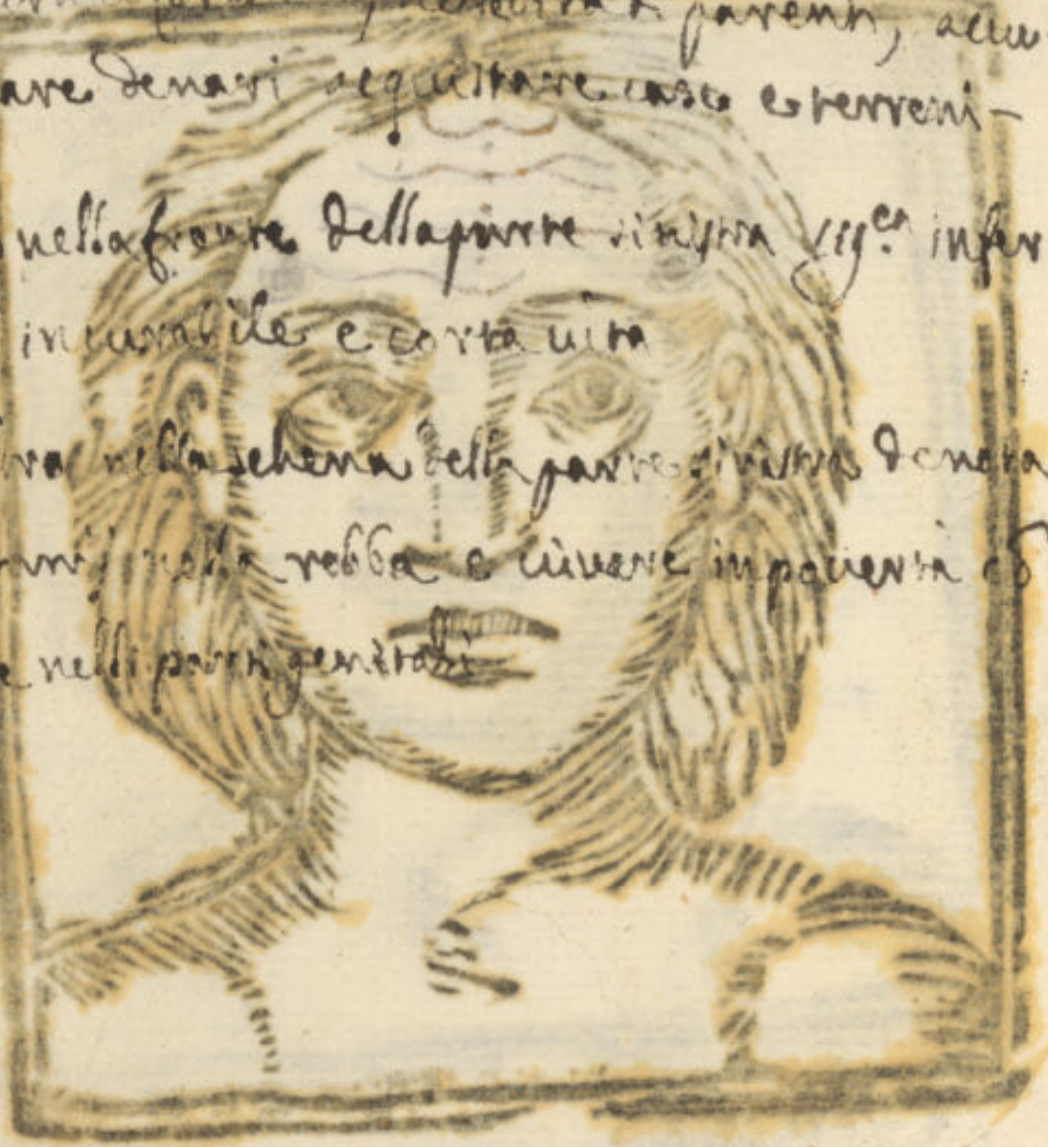 parenti, accu
are denari acquistare case e terreni-
nella fronte della parte sinistra infer
incurabile e corta uita
nella schena della parte sinistra denota
nella robba e uiuere in pouertà
e nelli parti genitali